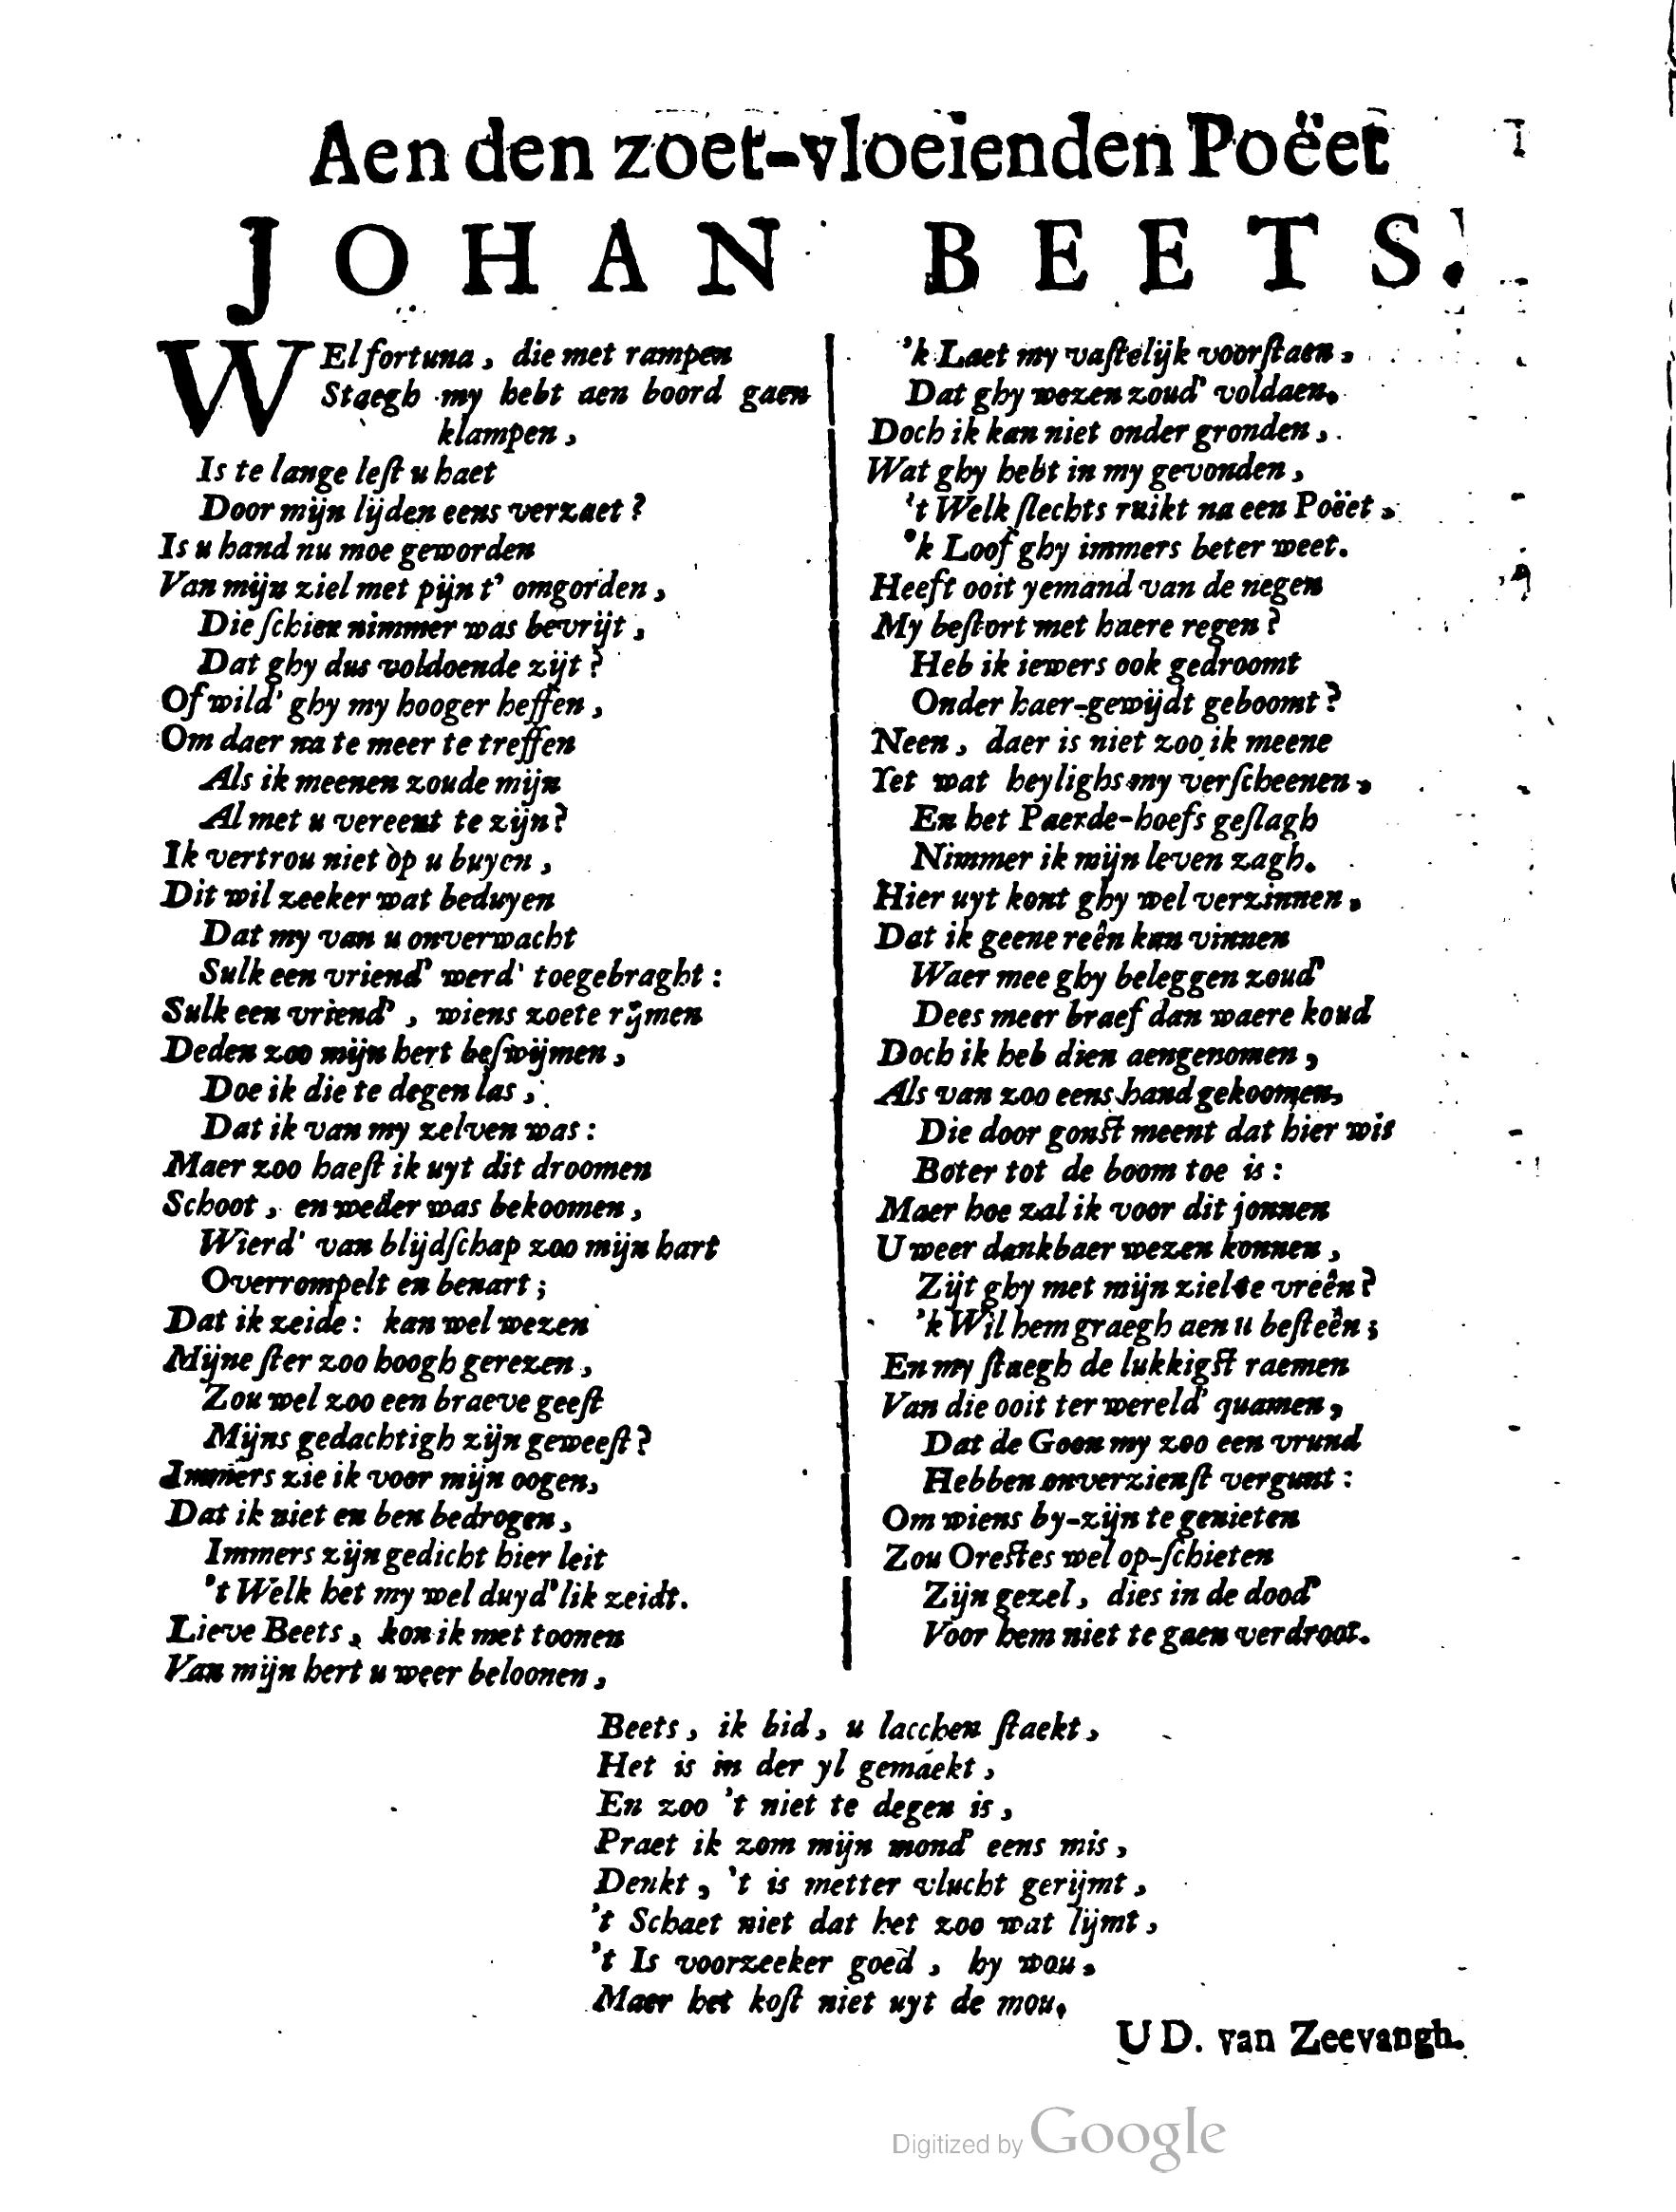 Aen den zoet-vloeienden Poëet
JOHAN BEETS.
WEl fortuna, die met rampen
Staegh my hebt aen boord gaen
klampen,
Is te lange leſt u haet
Door mijn lijden eens verzaet?
Is u hand nu moe geworden
Van mijn ziel met pijn t' omgorden,
Die ſchier nimmer was bevrijt,
Dat ghy dus voldoende zijt?
Of wild' ghy my hooger heffen,
Om daer na te meer te treffen
Als ik meenen zoude mijn
Al met u vereent te zijn?
Ik vertrou niet op u buyen,
Dit wil zeeker wat beduyen
Dat my van u onverwacht
Sulk een vriend' werd' toegebraght:
Sulk een vriend', wiens zoete rijmen
Deden zoo mijn hert beſwijmen,
Doe ik die te degen las,
Dat ik van my zelven was:
Maer zoo haeſt ik uyt dit droomen
Schoot, en weder was bekoomen,
Wierd' van blijdſchap zoo mijn hart
Overrompelt en benart;
Dat ik zeide: kan wel wezen
Mijne ſter zoo hoogh gerezen,
Zou wel zoo een braeve geeſt
Mijns gedachtigh zijn geweeſt?
Immers zie ik voor mijn oogen,
Dat ik niet en ben bedrogen,
Immers zijn gedicht hier leit
't Welk het my wel duyd'lik zeidt.
Lieve Beets, kon ik met toonen
Van mijn hert u weer beloonen,
'k Laet my vaſtelijk voorſtaen,
Dat ghy wezen zoud' voldaen.
Doch ik kan niet onder gronden,
Wat ghy hebt in my gevonden,
't Welk ſlechts ruikt na een Poëet,
'k Loof ghy immers beter weet.
Heeft ooit yemand van de negen
My beſtort met haere regen?
Heb ik iewers ook gedroomt
Onder haer-gewijdt geboomt?
Neen, daer is niet zoo ik meene
Yet wat heylighs my verſcheenen,
En het Paerde-hoefs geſlagh
Nimmer ik mijn leven zagh.
Hier uyt kont ghy wel verzinnen,
Dat ik geene reên kan vinnen
Waer mee ghy beleggen zoud'
Dees meer braef dan waere koud
Doch ik heb dien aengenomen,
Als van zoo eens hand gekoomen,
Die door gonſt meent dat hier wis
Boter tot de boom toe is:
Maer hoe zal ik voor dit jonnen
U weer dankbaer wezen konnen,
Zijt ghy met mijn ziel te vreên?
'k Wil hem graegh aen u beſteên;
En my ſtaegh de lukkigſt raemen
Van die ooit ter wereld' quamen,
Dat de Goon my zoo een vrund
Hebben onverzienſt vergunt:
Om wiens by-zijn te genieten
Zou Oreſtes wel op-ſchieten
Zijn gezel, dies in de dood'
Voor hem niet te gaen verdroot.
Beets, ik bid, u lacchen ſtaekt,
Het is in der yl gemaekt,
En zoo 't niet te degen is,
Praet ik zom mijn mond' eens mis,
Denkt, 't is metter vlucht gerijmt,
't Schaet niet dat het zoo wat lijmt,
't Is voorzeeker goed, hy wou,
Maer het koſt niet uyt de mou.
U D. van Zeevangh.
Digitized by Google